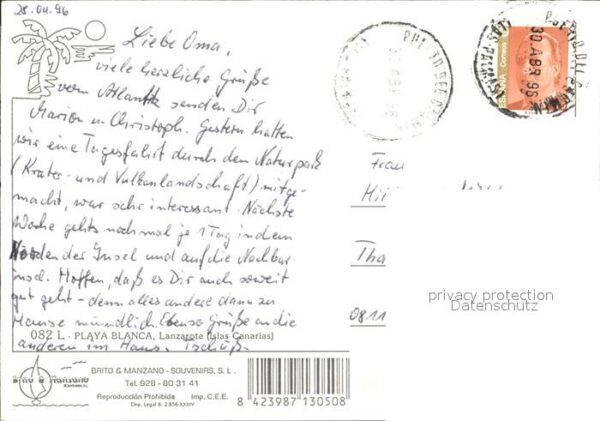 28.04.96
Liebe Oma,
viele herzliche Grüße
vom Atlantik senden Dir
Marion u. Christoph. Gestern hatten
wir eine Tagesfahrt durch den Naturpark
(Krater- und Vulkanlandschaft) mitge-
macht, war sehr interessant. Nächste
Woche gehts nochmal je 1 Tag in den
Norden der Insel und auf die Nachbar-
insel. Hoffen, daß es Dir auch soweit
gut geht - denn alles andere dann zu
Hause mündlich. Ebenso Grüße an die
anderen im Haus. Tschüß
082 L - PLAYA BLANCA, Lanzarote (Islas Canarias)
Brito & Manzano
BRITO & MANZANO - SOUVENIRS, S. L.
Tel. 928 - 80 31 41
Reproducción Prohibida Imp. C.E.E.
8 423987 130508
PUERTO DEL CARMEN
30 ABR 96
ESPAÑA Correos
PUERTO DEL CARMEN
30 ABR 96
Frau
Tha
0811
privacy protection
Datenschutz